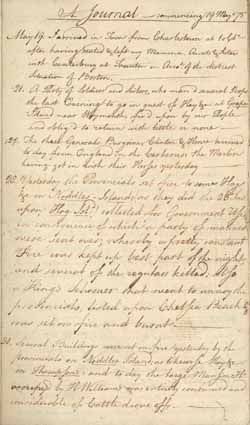 A Journal commencing 19 May 75
May 19. I arrived in Town from Charlestown at 10 o'Clo
after having & left my Mamma Aunts & Sister
with at Taunton on Acco. of the distress'd
situation of Boston
21. A Party of Soldiers and Sailors, who man'd several Sloops
the last Evening to go in quest of Hay &c. at Grape
Island near Weymouth, fired upon by our People
and oblig'd to return with little or none
27. The Rank Generals Burgoyne Clinton & Howe arrived
to day from England in the Cerberus the Merlin
having got in with their Horses yesterday
28. Yesterday the Provincials set fire to some Hay
&c on Noddles Island, as they did the 26 Inst
upon Hog Isld. collected for Government Use
in consequence of which a party of marines
were sent over; whereby a pretty constant
Fire was kept up best part of the night,
and several of the regulars killed. Also
a King's Schooner that went to annoy the
provincials, halted upon Chelsea Beach &
was set on fire and burnt.
30. Several Buildings were set on fire yesterday by the
provincials on Noddles Island, as likewise Hay &c
on Thompsons: and to day the large Mansion H
occupied by H Williams was entirely consumed and
considerable of Cattle drove off.